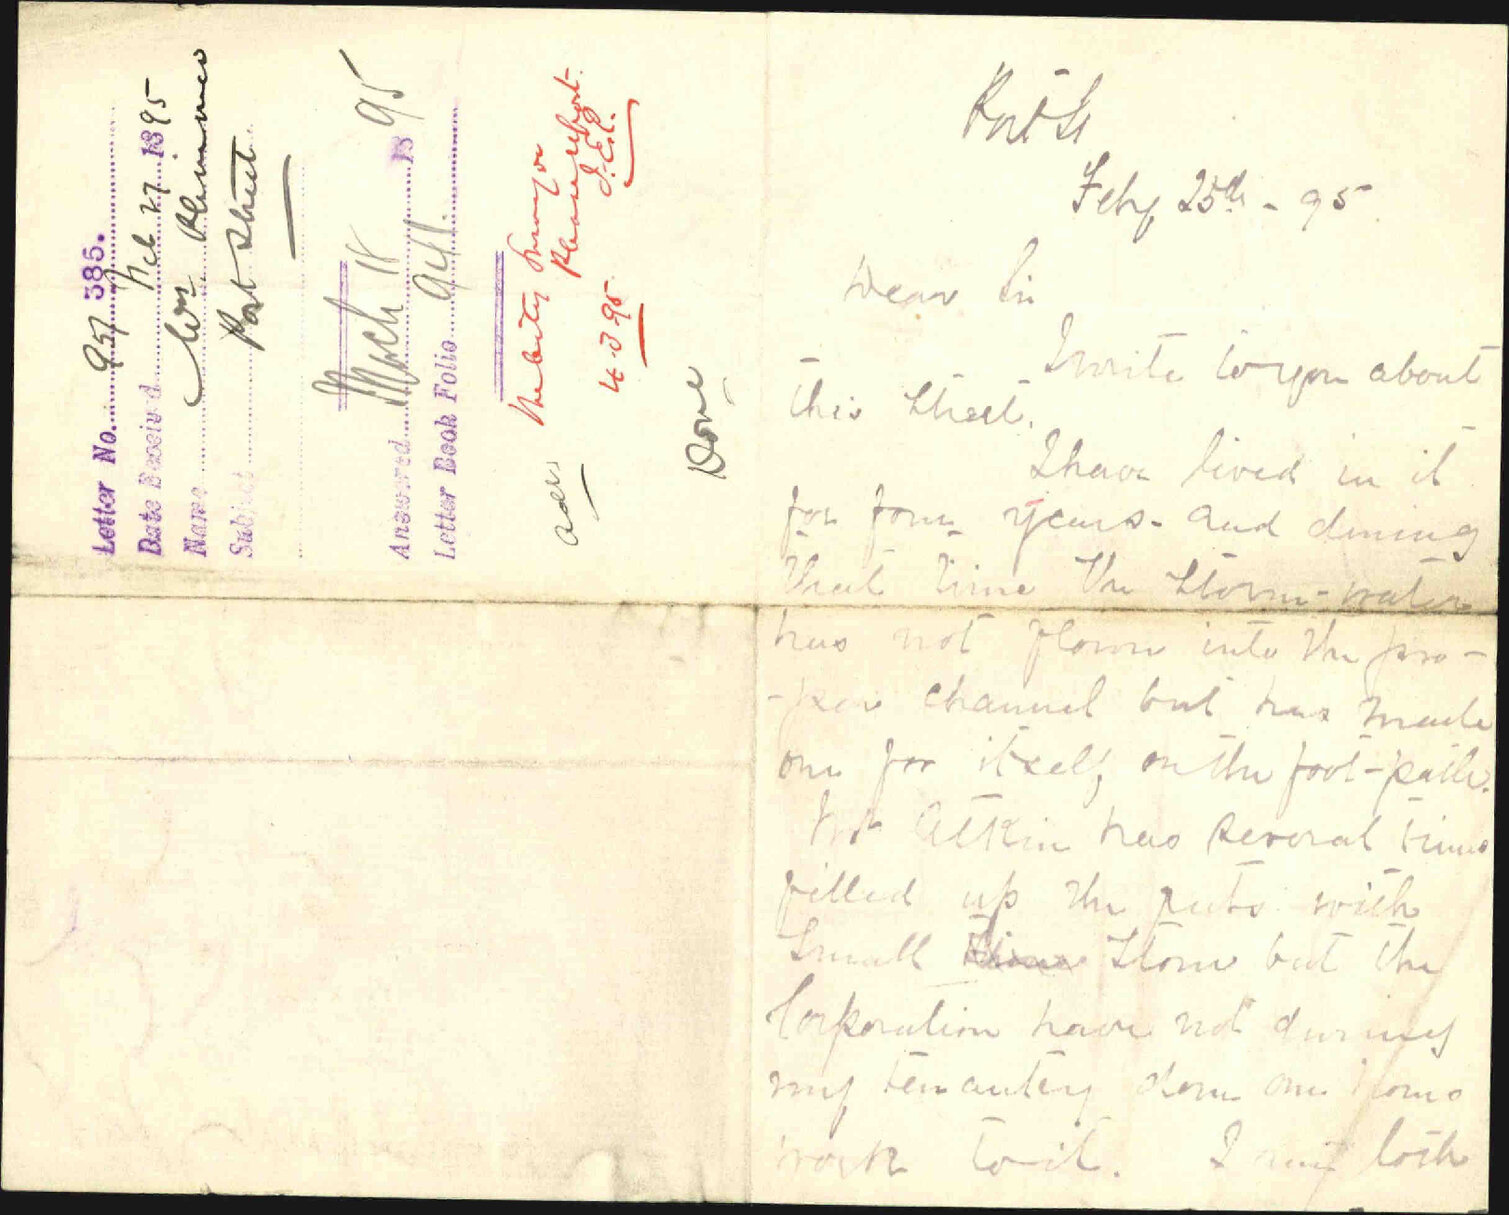 Letter No. 957 386.
Date Received Feb 27 1895
Name Wm.
Subject Port Street
Answered March 18 1895
Letter Book Folio 941.
The City Surveyor
Please report.
J.E.C.
4.3.95
Done
Port St
Feby 25th - 95.
Dear Sir
I write to you about
this Street.
I have lived in it
for four years - and during
that time the Storm-water
has not flown into the pro-
-per channel but has made
one for itself, on the foot-path.
Mr Atkin has several times
filled up the ruts with
small stone but the
Corporation have not during
my tenantcy done one hours
work to it. I am loth